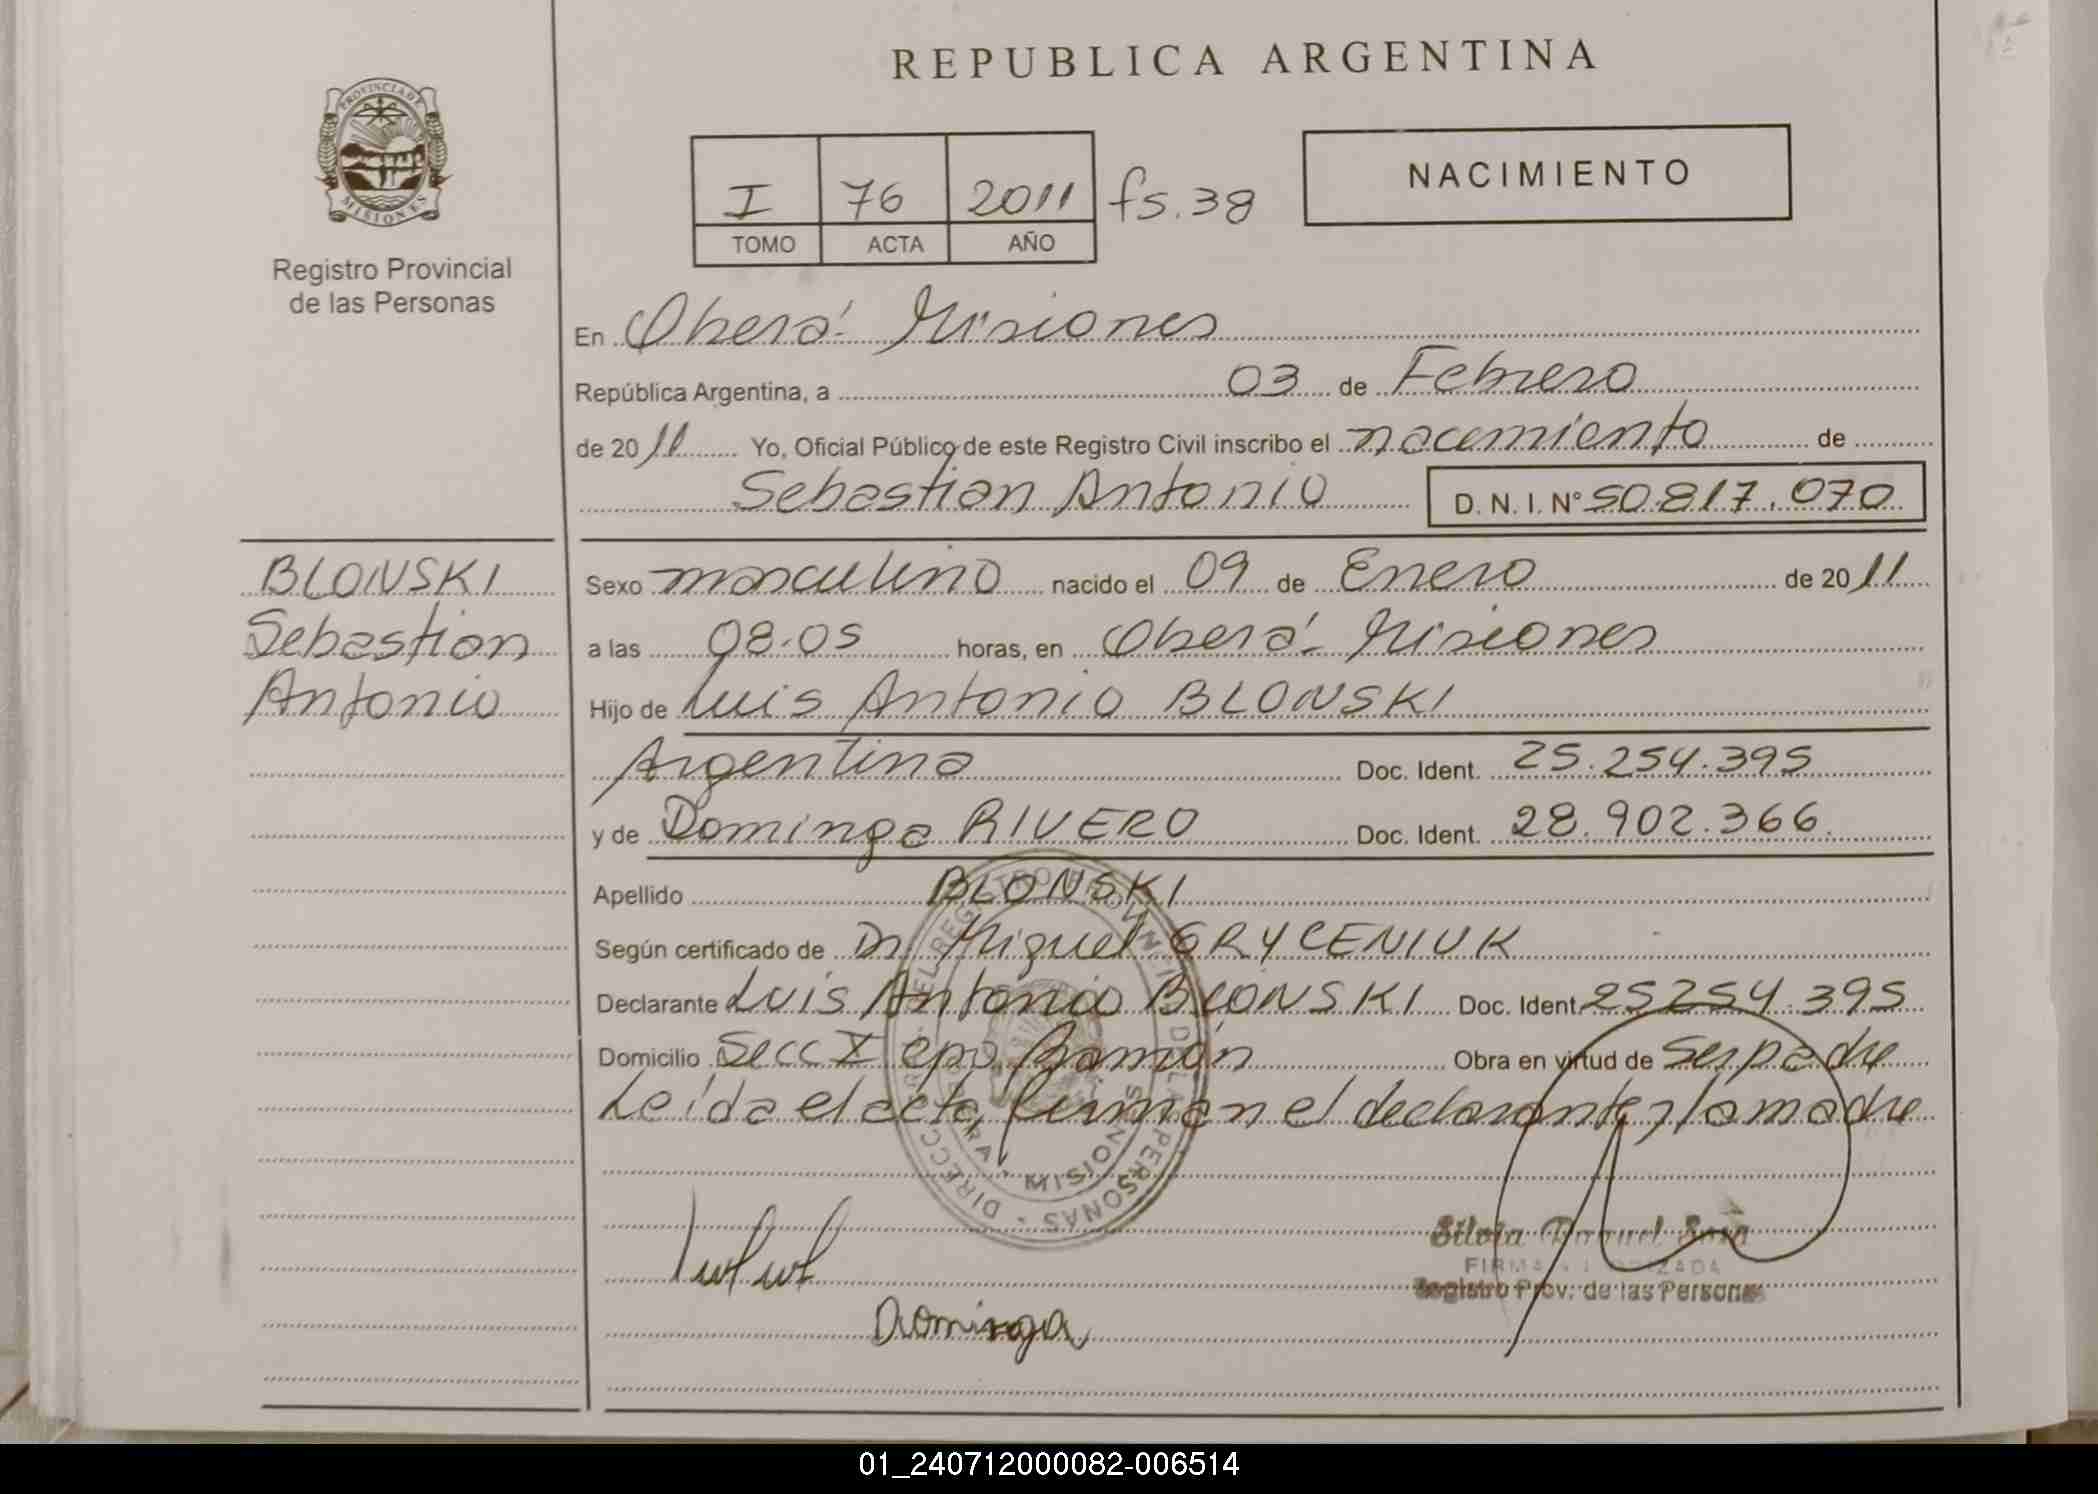 REPUBLICA ARGENTINA
PROVINCIA DE
MISIONES
Registro Provincial
de las Personas
I 76 2011 fs. 38
TOMO ACTA AÑO
NACIMIENTO
En Oberá - Misiones
República Argentina, a 03 de Febrero
de 2011 Yo, Oficial Público de este Registro Civil inscribo el nacimiento de
Sebastian Antonio D. N. I. N° 50.817.070
BLONSKI
Sebastian
Antonio
Sexo masculino nacido el 09 de Enero de 2011
a las 08.05 horas, en Oberá - Misiones
Hijo de Luis Antonio BLONSKI
Argentina Doc. Ident. 25.254.395
y de Dominga RIVERO Doc. Ident. 28.902.366.
Apellido BLONSKI
Según certificado de Dr. Miguel GRYCENIUK
Declarante Luis Antonio BLONSKI Doc. Ident. 25254.395
Domicilio Secc I Cpo Ramón Obra en virtud de ser padre
Leída el acta, firman el declarante y la madre
MISIONES
Dominga
Silvia Raquel
Registro Prov. de las Personas
01_240712000082-006514